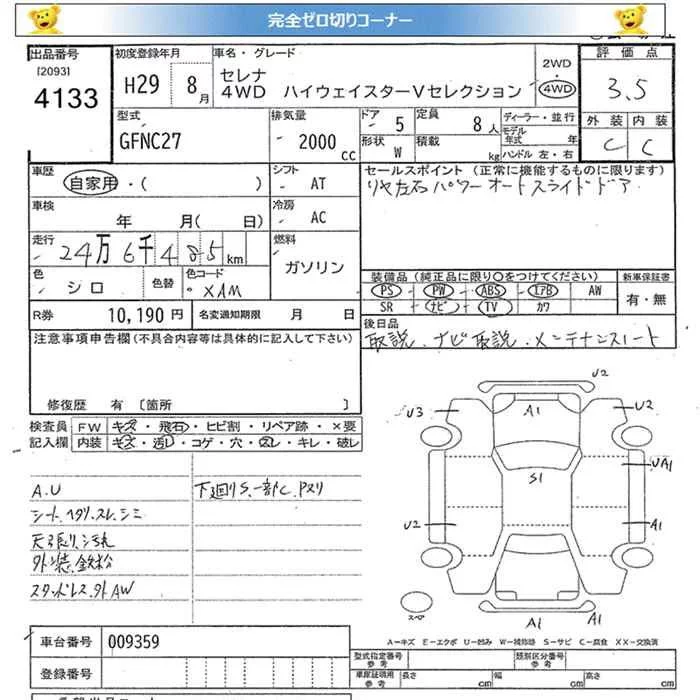 完全ゼロ切りコーナー
出品番号
[2093]
4133
初度登録年月
H29 8月
車名・グレード
セレナ
4WD ハイウェイスターVセレクション
2WD
・
4WD
評価点
3.5
外装 内装
C C
型式
GFNC27
排気量
2000 cc
ドア 5
形状 W
定員 8人
積載 kg
ディーラー・並行
モデル年式 年
ハンドル 左・右
車歴
自家用・( )
シフト
AT
車検
年 月( 日)
冷房
AC
走行
24万6千485km
燃料
ガソリン
色
シロ
色替
色コード
XAM
R券 10,190円
名変通知期限 月 日
セールスポイント (正常に機能するものに限ります)
リヤ左右パワーオートスライドドア
装備品 (純正品に限り○をつけてください)
PS PW ABS エアB AW
SR ナビ TV カワ
新車保証書
有・無
後日品
取説.ナビ取説.メンテナンスノート
注意事項申告欄(不具合内容等は具体的に記入して下さい)
修復歴 有 〔箇所 〕
検査員記入欄
FW キズ・飛石・ヒビ割・リペア跡・×要
内装 キズ・汚レ・コゲ・穴・スレ・キレ・破レ
A.U
シート.ヘタリ.スレ.シミ
天張り.汚れ
外装.鈑粉
スタッドレス.外AW
下廻りS.一部C.Pヌリ
U2
U3
A1
U2
S1
UA1
U2
A1
A1
A1
スペア
A-キズ E-エクボ U-凹み W-補修跡 S-サビ C-腐食 XX-交換済
車台番号 009359
登録番号
型式指定番号 参考
類別区分番号 参考
車庫証明用 参考
長さ cm
幅 cm
高さ cm